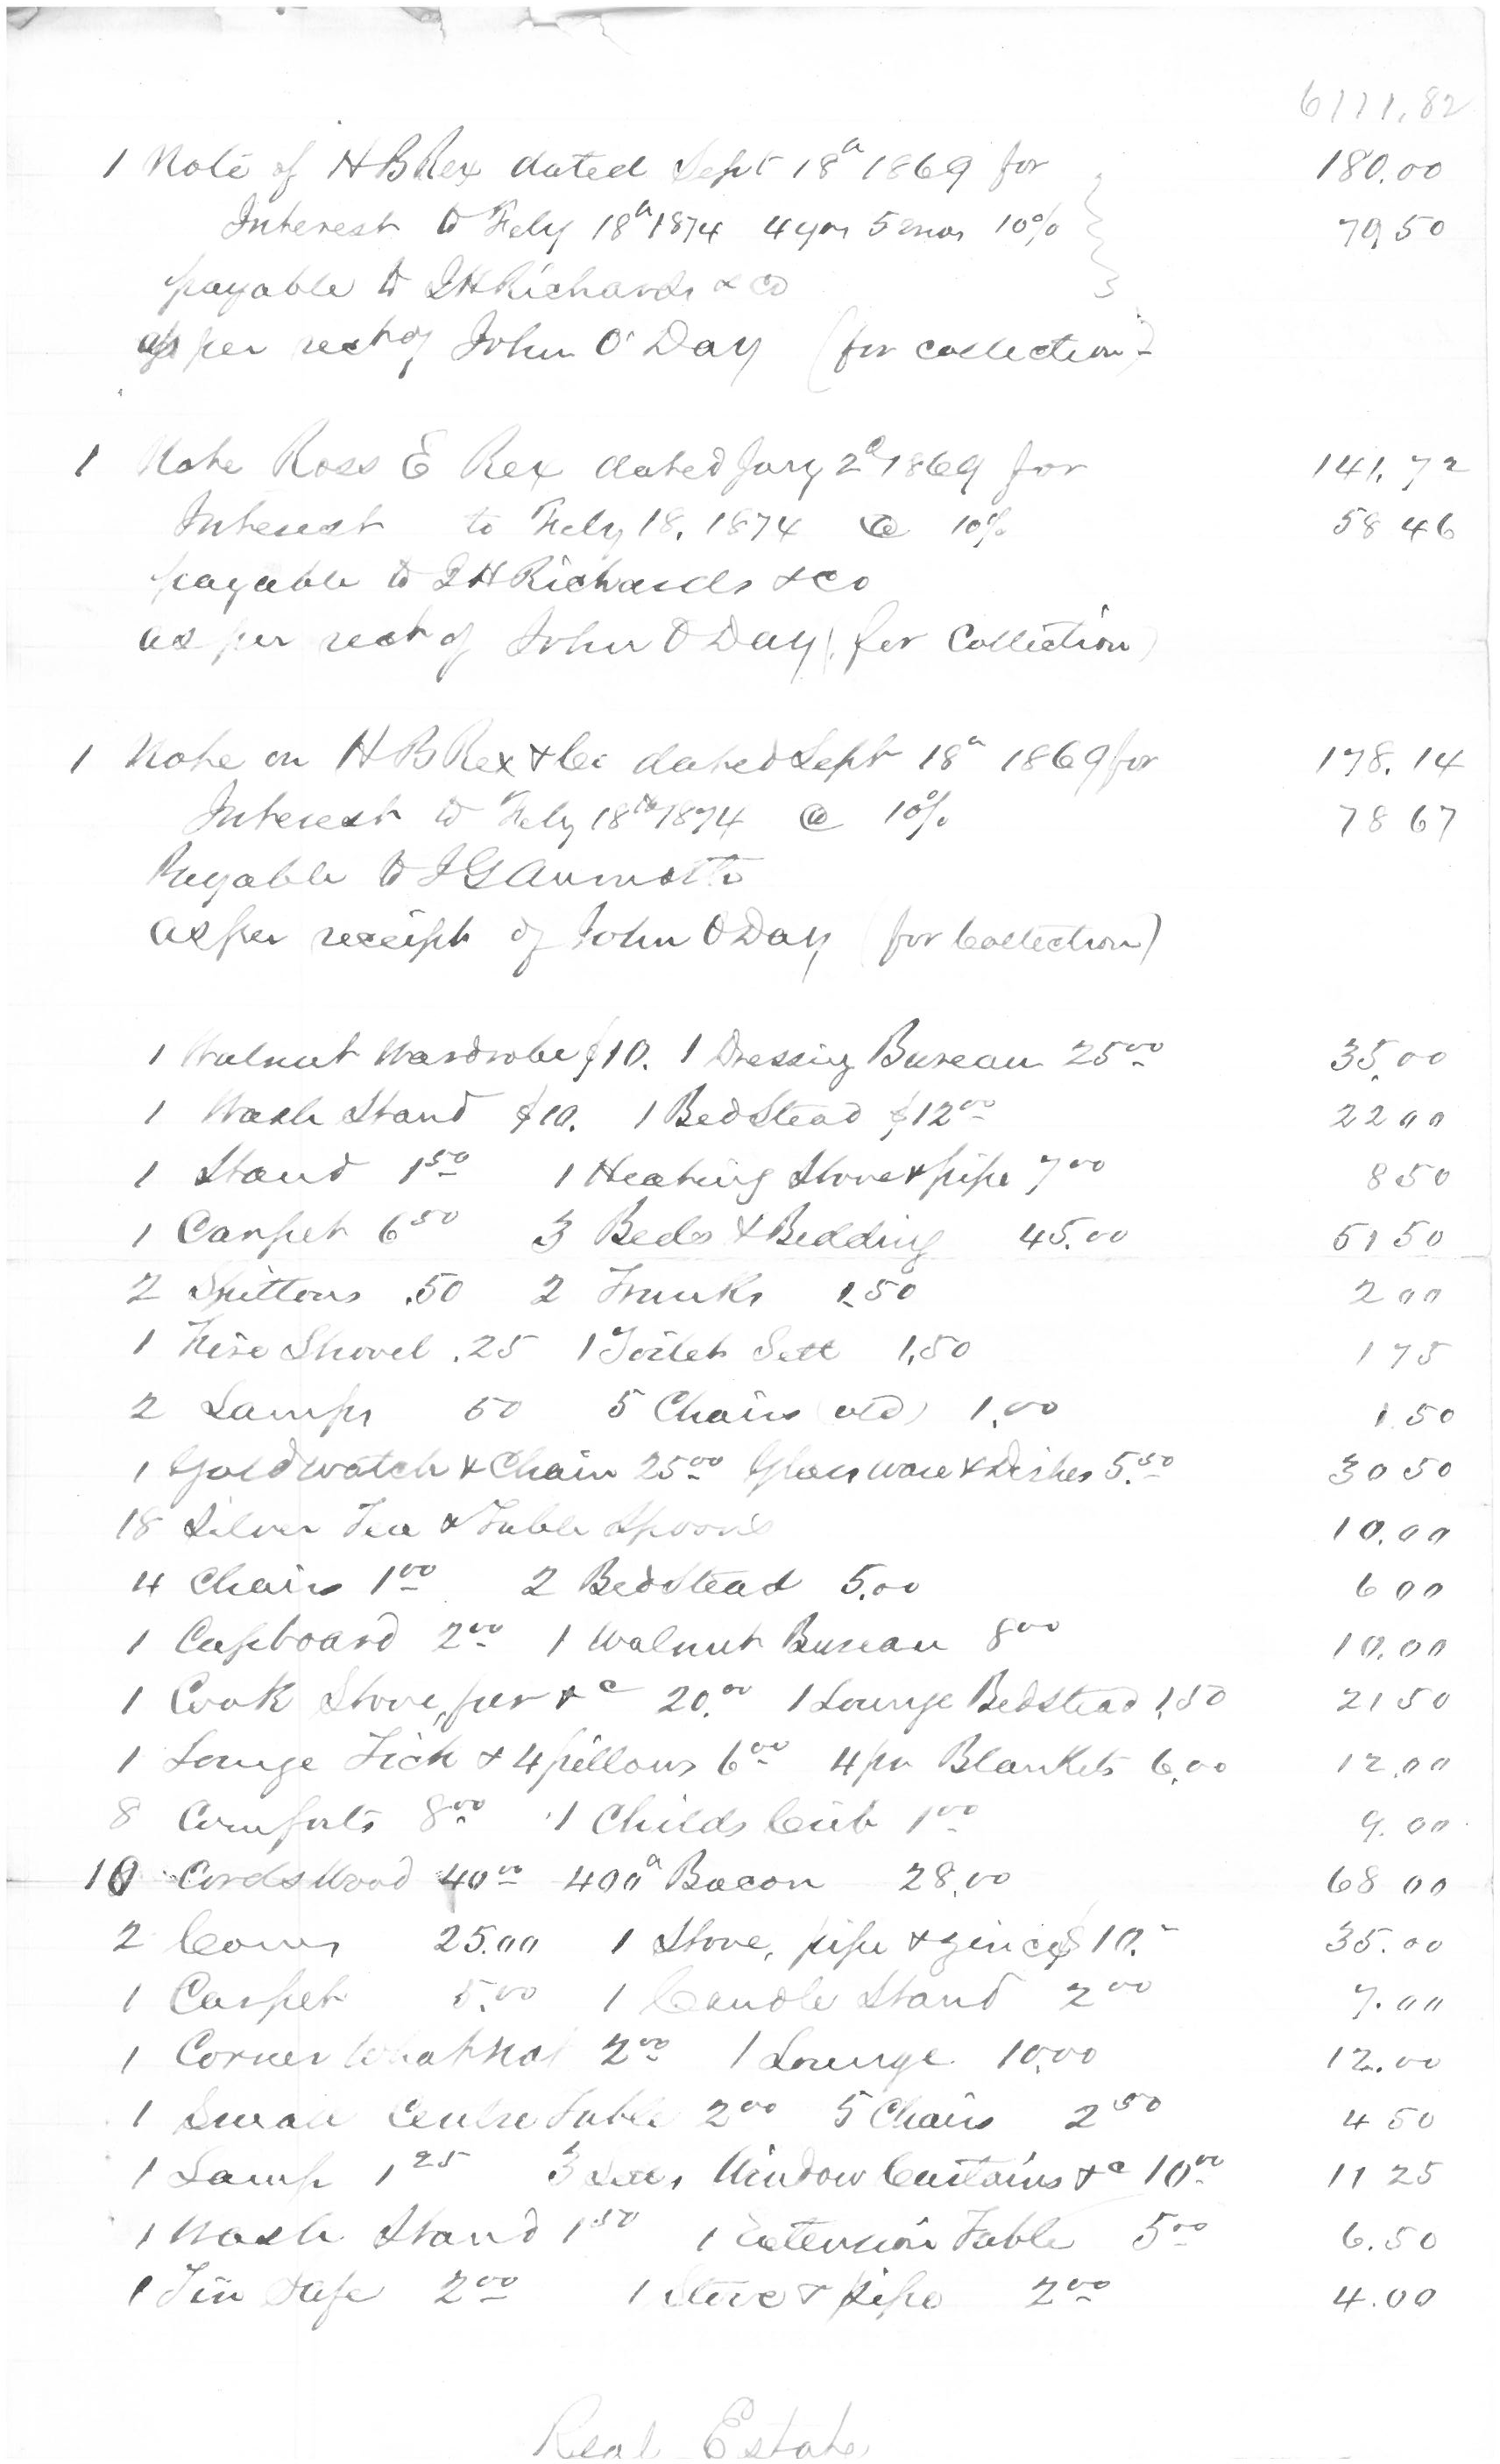 6111.82
1 Note of H B Rex dated Sept 18th 1869 for 180.00
Interest to Feby 18th 1874 4 yrs 5 mos 10% 79 50
payable to J H Richards & Co
as per rect of John O'Day (for collection)
1 Note Ross E Rex dated Jany 2d 1869 for 141.72
Interest to Feby 18, 1874 @ 10% 58 46
payable to J H Richards & Co
as per rect of John O Day (for Collection)
1 Note on H B Rex & Co dated Sept 18th 1869 for 178.14
Interest to Feby 18th 1874 @ 10% 78 67
Payable to J G
as per receipt of John O Day (for Collection)
1 Walnut Wardrobe $10. 1 Dressing Bureau 25 00 35.00
1 Wash Stand $10. 1 BedStead $12 00 22 00
1 Stand 1 50 1 Heating Stove & pipe 7 00 8 50
1 Carpet 6 50 3 Beds & Bedding 45.00 51 50
2 Spittons .50 2 Trunks 1.50 2 00
1 Fire Shovel .25 1 Toilet Sett 1.50 1 75
2 Lamps 50 5 Chairs (old) 1.00 1.50
1 Gold watch & Chain 25 00 Glass ware & Dishes 5.50 30 50
18 Silver Tea & Table Spoons 10.00
4 Chairs 1 00 2 BedStead 5.00 6 00
1 Cupboard 2 00 1 Walnut Bureau 8 00 10.00
1 Cook Stove, fur &c 20.00 1 Lounge Bedstead 1.50 21 50
1 Lounge Tick & 4 pillows 6 00 4 pr Blankets 6.00 12.00
8 Comforts 8 00 1 Childs Crib 1 00 9.00
10 Cords Wood 40 00 400 Bacon 28.00 68 00
2 Cows 25.00 1 Stove, pipe & zinc $10.- 35.00
1 Carpet 5.00 1 Candle Stand 2 00 7.00
1 Corner What Not 2 00 1 Lounge 10.00 12.00
1 Small Centre Table 2 00 5 Chairs 2 50 4 50
1 Lamp 1 25 3 Setts Window Curtains &c 10 00 11 25
1 Wash Stand 1 50 1 Extension Table 5 00 6.50
1 Tin Safe 2 00 1 Stove & pipe 2 00 4.00
Real Estate